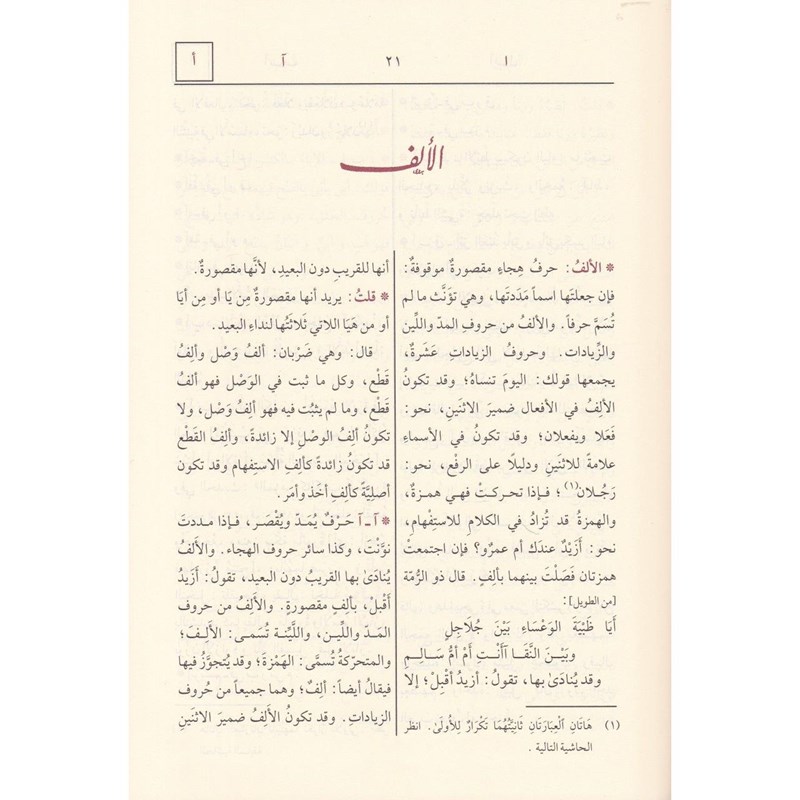 ا ٢١ آ أ
الألِف
* الألفُ: حرفُ هِجاءٍ مقصورةٌ موقوفةٌ:
فإن جعلتَها اسماً مَدَدتَها، وهي تؤنَّث ما لم
تُسَمَّ حرفاً. والألفُ من حروفِ المدّ واللِّين
والزِّيادات. وحروفُ الزياداتِ عَشَرةٌ،
يجمعها قولك: اليومَ تنساهُ؛ وقد تكونُ
الألِفُ في الأفعال ضميرَ الاثنَينِ، نحو:
فَعَلا ويفعلان؛ وقد تكونُ في الأسماءِ
علامةً للاثنَينِ ودليلاً على الرفْع، نحو:
رَجُلان(١)؛ فإذا تحركتْ فهي همزةٌ،
والهمزةُ قد تُزادُ في الكلامِ للاستِفْهامِ،
نحو: أزَيْدٌ عندَك أم عمرٌو؟ فإن اجتمعتْ
همزتان فَصَلْتَ بينهما بألِفٍ. قال ذو الرُّمّة
[من الطويل]:
أيَا ظَبْيَةَ الوَعْسَاءِ بَيْنَ جُلاجِلٍ
وبَيْنَ النَّقَا آأنْتِ أمْ أمُّ سَالِمِ
وقد يُنادَىٰ بها، تقولُ: أزيدُ أقبِلْ؛ إلا
(١) هَاتَانِ العِبَارَتَانِ ثَانِيَتُهُمَا تَكْرَارٌ لِلأُولَىٰ. انظر
الحاشية التالية.
أنها للقريبِ دون البعيدِ، لأنَّها مقصورةٌ.
* قلتُ: يريد أنها مقصورةٌ مِن يَا أو مِن أيَا
أو من هَيَا اللاتي ثَلاثَتُها لنداءِ البعيد.
قال: وهي ضَرْبان: ألفُ وَصْل وألِفُ
قَطْع، وكل ما ثبت في الوَصْل فهو ألفُ
قَطْع، وما لم يثبُت فيه فهو ألِفُ وَصْل، ولا
تكونُ ألِفُ الوصْلِ إلا زائدةً، وألِفُ القَطْع
قد تكونُ زائدةً كألِفِ الاستِفْهام وقد تكون
أصلِيَّةً كألِفِ أخَذ وأمَر.
* آ ـ آ حَرْفٌ يُمَدّ ويُقْصَر، فإذا مددتَ
نوَّنْتَ، وكذا سائر حروف الهجاء. والألفُ
يُنادَىٰ بها القريبُ دون البعيد، تقولُ: أزَيدُ
أقبِلْ، بألِفٍ مقصورةٍ. والألِفُ من حروف
المَدّ واللِّين، واللَّيِّنة تُسَمَى: الألِفَ؛
والمتحرّكةُ تُسمَّى: الهَمْزةَ؛ وقد يُتجوَّزُ فيها
فيقالُ أيضاً: ألِفٌ؛ وهما جميعاً من حُروف
الزيادات. وقد تكونُ الألِفُ ضميرَ الاثنَينِ